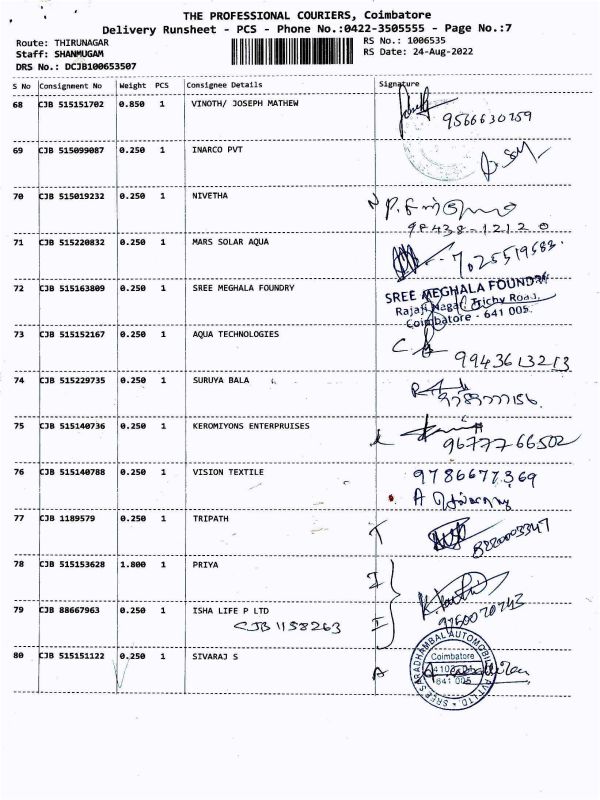 THE PROFESSIONAL COURIERS, Coimbatore
Delivery Runsheet - PCS - Phone No.:0422-3505555 - Page No.:7
Route: THIRUNAGAR
Staff: SHANMUGAM
DRS No.: DCJB100653507
RS No.: 1006535
RS Date: 24-Aug-2022
S No Consignment No Weight PCS Consignee Details Signature
68 CJB 515151702 0.850 1 VINOTH/ JOSEPH MATHEW
9566630759
69 CJB 515099087 0.250 1 INARCO PVT
70 CJB 515019232 0.250 1 NIVETHA
98438-12120
71 CJB 515220832 0.250 1 MARS SOLAR AQUA
7025519583.
72 CJB 515163809 0.250 1 SREE MEGHALA FOUNDRY
SREE MEGHALA FOUNDRY
Rajaji Nagar, Trichy Road,
Coimbatore - 641 005.
73 CJB 515152167 0.250 1 AQUA TECHNOLOGIES
9943613213
74 CJB 515229735 0.250 1 SURUYA BALA
75 CJB 515140736 0.250 1 KEROMIYONS ENTERPRUISES
9677766502
76 CJB 515140788 0.250 1 VISION TEXTILE
9786677369
A
77 CJB 1189579 0.250 1 TRIPATH
T
8220003347
78 CJB 515153628 1.800 1 PRIYA
I
79 CJB 88667963 0.250 1 ISHA LIFE P LTD
CJB 1158263
I
9750070743
80 CJB 515151122 0.250 1 SIVARAJ S
A
Coimbatore
641 005